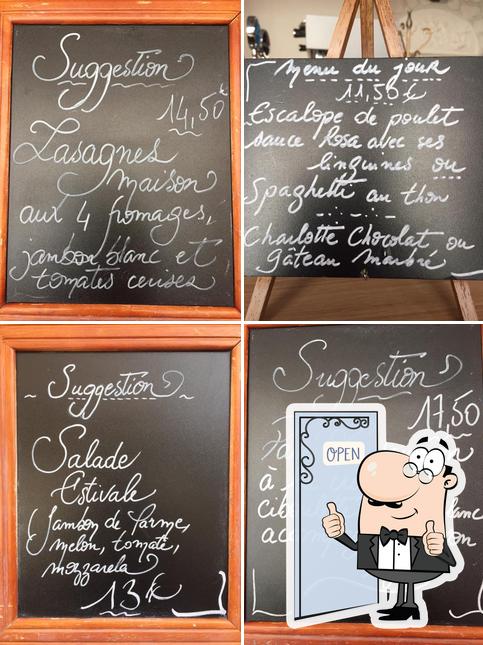 Suggestion
14,50€
Lasagnes
maison
aux 4 fromages,
jambon blanc et
tomates cerises
Menu du jour
11,50 €
Escalope de poulet
sauce Rosa avec ses
linguines ou
Spaghetti au thon
Charlotte Chocolat, ou
gâteau marbré
Suggestion
Salade
Estivale
(Jambon de farme,
melon, tomate,
mozzarela)
13€
Suggestion
17,50
à
OPEN